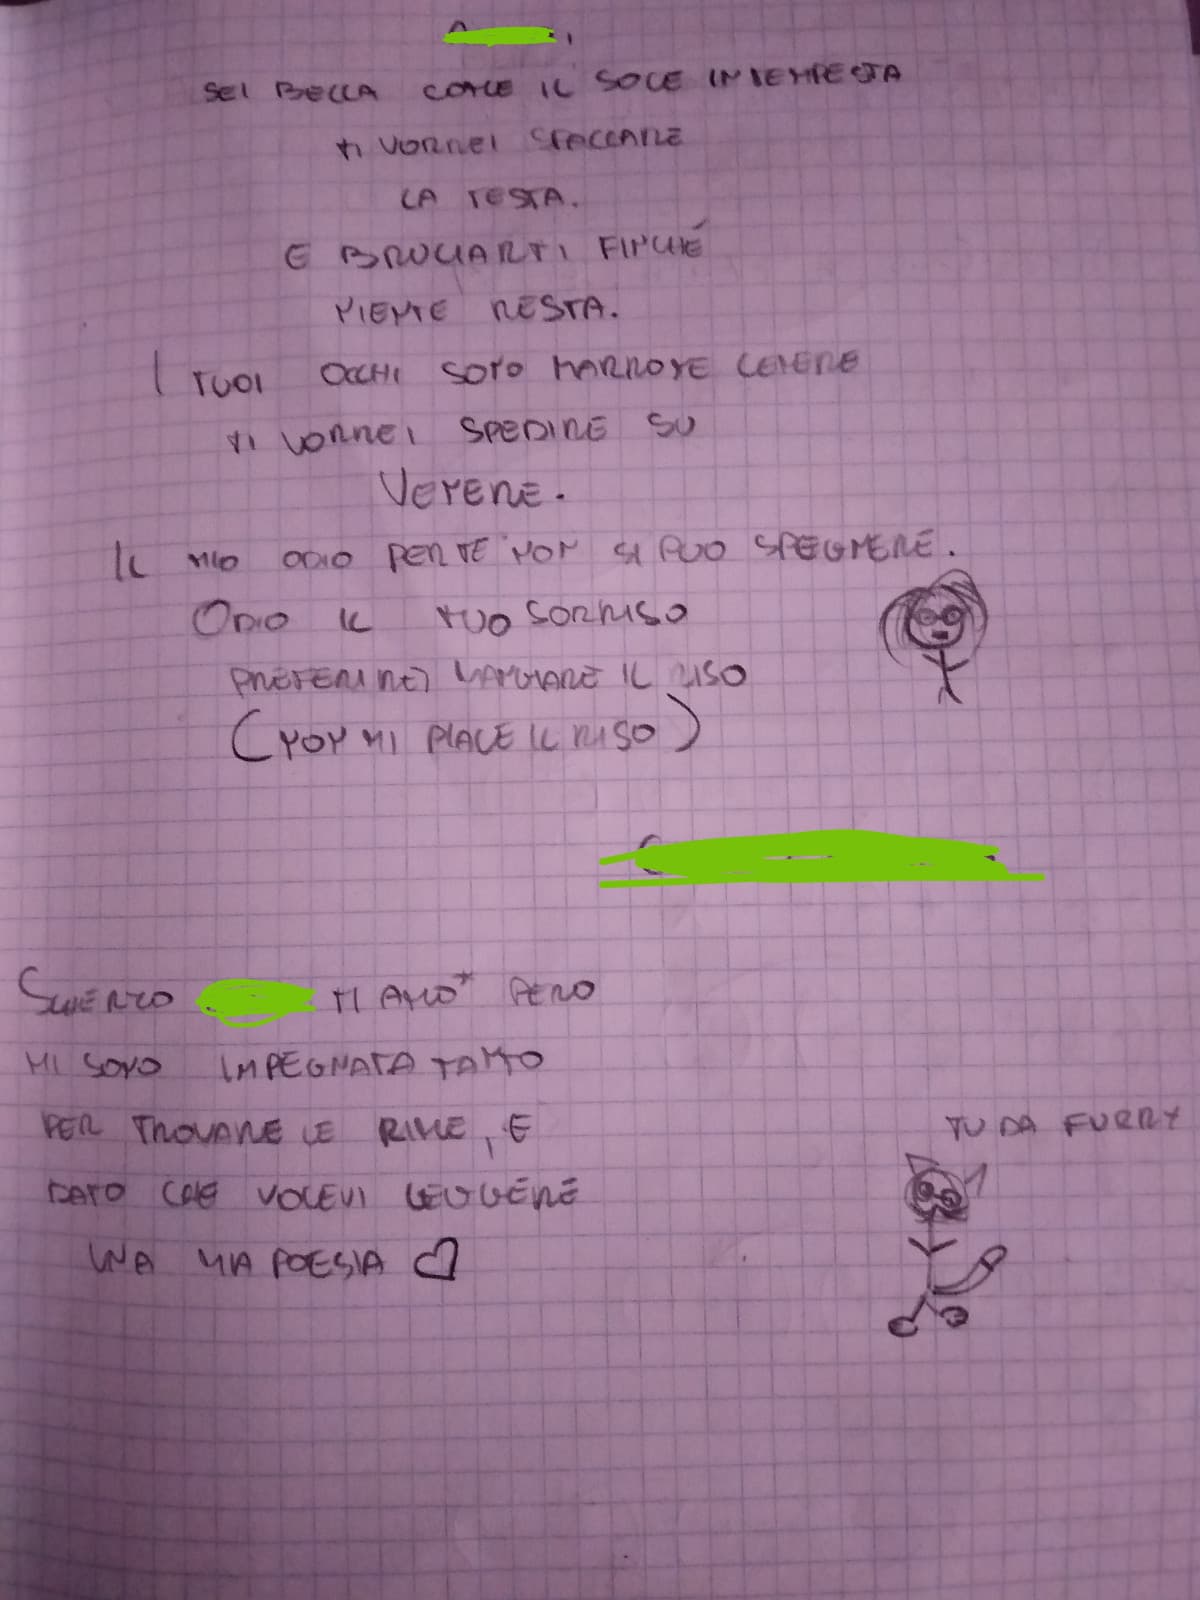 SEI BELLA COME IL SOLE IN TEMPESTA
TI VORREI SPACCARE
LA TESTA.
E BRUCIARTI FINCHÉ
NIENTE RESTA.
I TUOI OCCHI SONO MARRONE CENERE
TI VORREI SPEDIRE SU
VENERE.
IL MIO ODIO PER TE NON SI PUO SPEGNERE.
ODIO IL TUO SORRISO
PREFERIREI MANGIARE IL RISO
(NON MI PIACE IL RISO)
SCHERZO TI AMO* PERO
MI SONO IMPEGNATA TANTO
PER TROVARE LE RIME, E
DATO CHE VOLEVI LEGGERE
UNA MIA POESIA ♡
TU DA FURRY